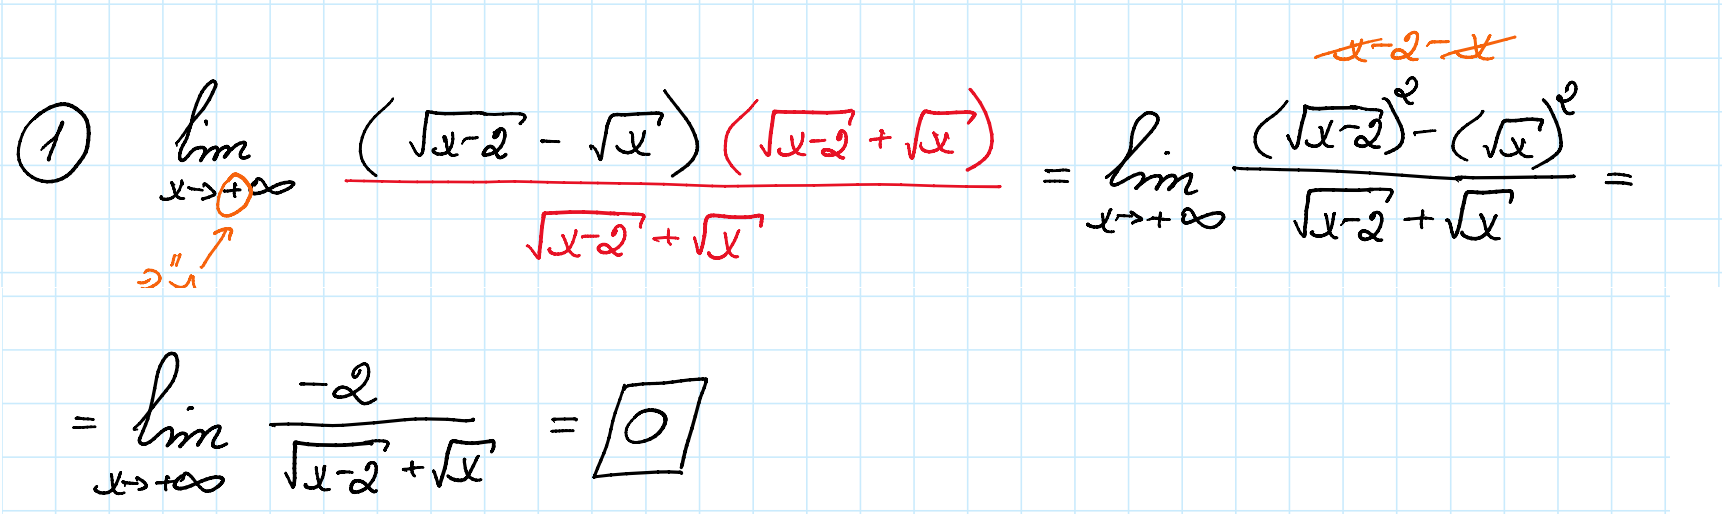 x-2-x
① lim x→+∞ (√(x-2) - √x)(√(x-2) + √x) / (√(x-2) + √x) = lim x→+∞ ((√(x-2))² - (√x)²) / (√(x-2) + √x) =
= lim x→+∞ -2 / (√(x-2) + √x) = 0